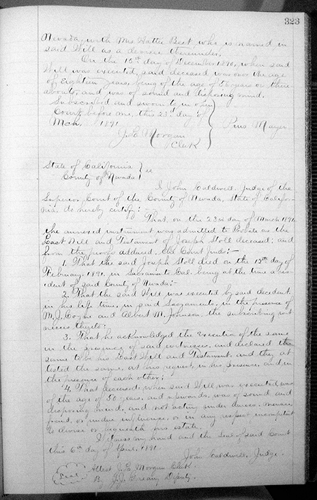 323
Nevada, with Mrs Hattie Best who is named in
said Will as a devisee thereunder.
On the 15th day of December 1890, when said
Will was executed, said deceased was over the age
of Eighteen years being of the age of 58 years or there
abouts, and was of sound and disposing mind.
Subscribed and sworn to in open
Court before me this 23d day of
March 1891.
Jno G. Morgan
Clerk
State of California } ss
County of Nevada
I, John Caldwell, Judge of the
Superior Court of the County of Nevada, State of Califor-
nia do hereby certify:
That on the 23rd day of March 1891,
the annexed instrument was admitted to Probate as the
Last Will and Testament of Joseph Stoll deceased, and
from the proofs adduced, the Court finds:
1. That the said Joseph Stoll died on the day of
February 1891, in Sacramento Cal. being at the time a resi-
dent of said County of Nevada:
2. That the said Will was executed by said decedent
in his life time in said Sacramento, in the presence of
M.J. and Albert M. Johnson, the subscribing wit-
nesses thereto;
3. That he acknowledged the execution of the same
in the presence of said witnesses, and declared the
same to be his Last Will and Testament, and they at-
tested the same, at his request, in his presence and in
the presence of each other;
4. That decedent, when said Will was executed, was
of the age of 58 years, and upwards, was of sound and
disposing mind, and not acting under duress, menace,
fraud, or undue influence, or in any respect incompetent
to devise or bequeath his estate.
Witness my hand and the Seal of said Court
this 6th day of April 1891.
John Caldwell, Judge.
Seal
Attest J.G. Morgan Clerk
By J.J. Deputy.